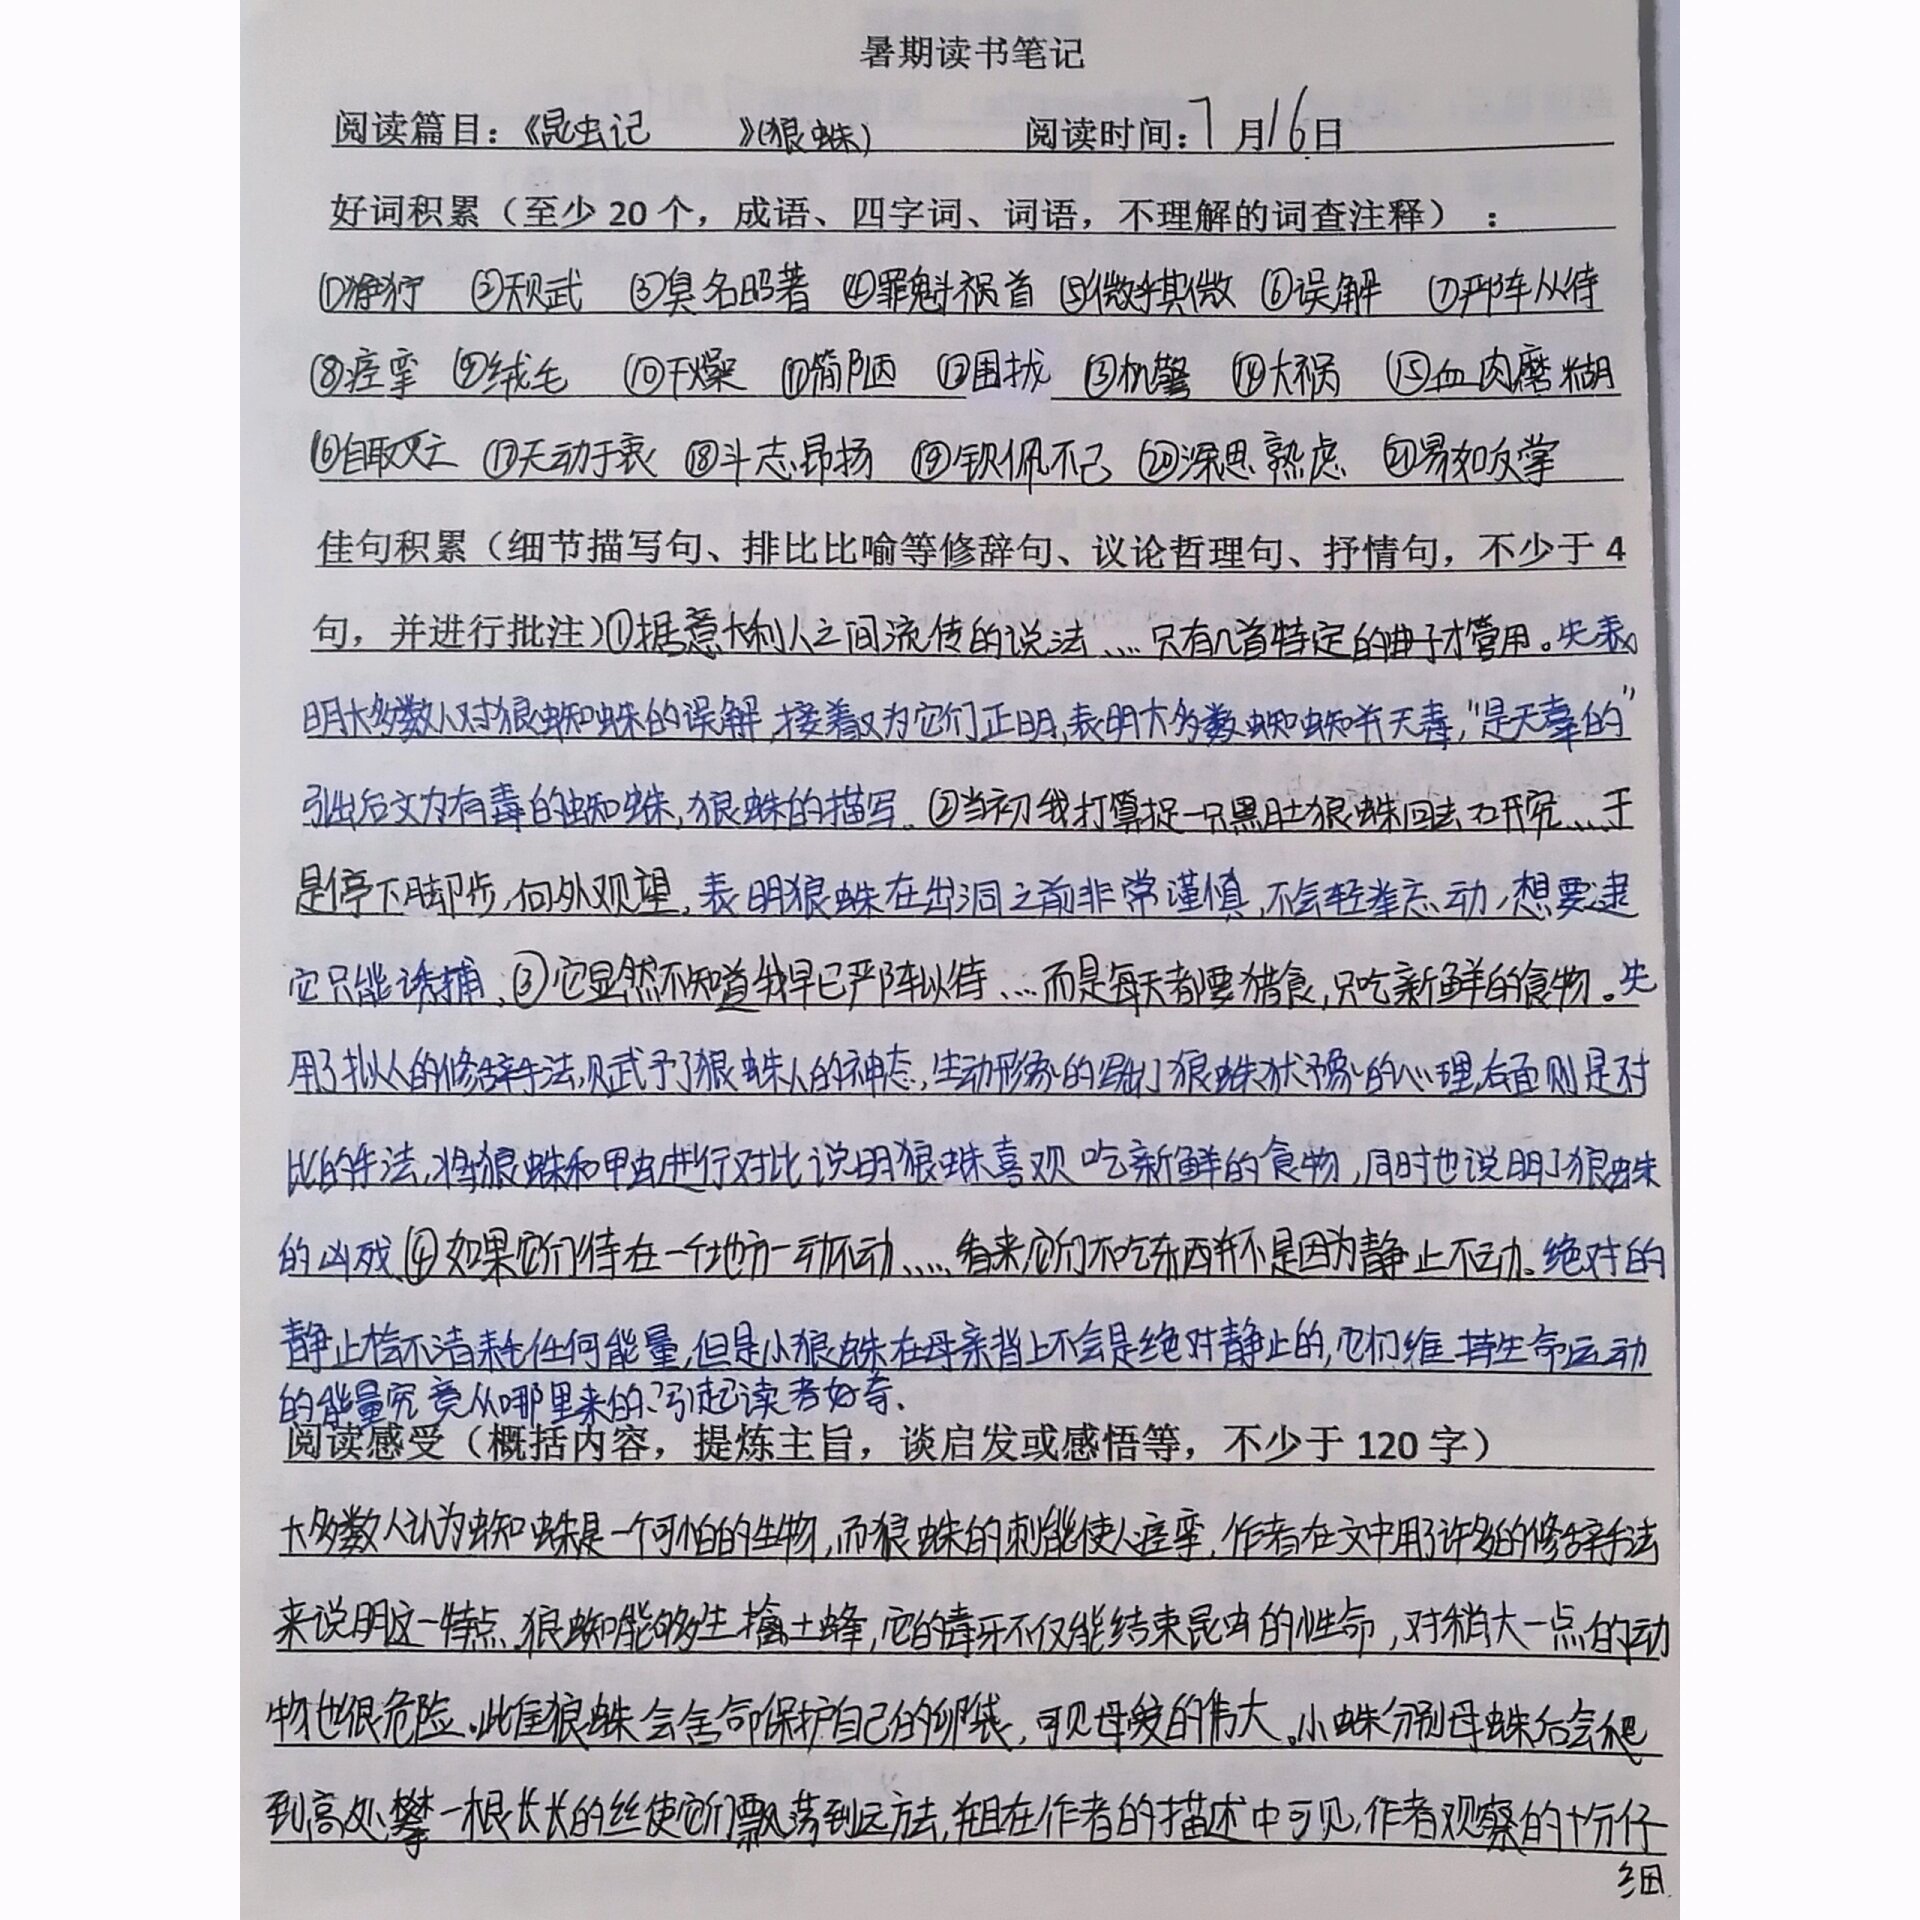 暑期读书笔记
阅读篇目：《昆虫记 》（狼蛛） 阅读时间：7月16日
好词积累（至少20个，成语、四字词、词语，不理解的词查注释）：
①狰狞 ②天武 ③臭名昭著 ④罪魁祸首 ⑤微乎其微 ⑥误解 ⑦严阵以待
⑧痉挛 ⑨绒毛 ⑩干燥 ⑪简陋 ⑫围拢 ⑬机警 ⑭大祸 ⑮血肉磨糊
⑯自取灭亡 ⑰无动于衷 ⑱斗志昂扬 ⑲钦佩不已 ⑳深思熟虑 ㉑易如反掌
佳句积累（细节描写句、排比比喻等修辞句、议论哲理句、抒情句，不少于4
句，并进行批注）①据意大利人之间流传的说法……只有几首特定的曲子才管用。先表
明大多数人对狼蜘蛛的误解，接着又为它们正明，表明大多数蜘蛛并无毒，“是无辜的”
引出后文为有毒的蜘蛛，狼蛛的描写。②当初我打算捉一只黑肚狼蛛回去研究……于
是停下脚步，向外观望，表明狼蛛在出洞之前非常谨慎，不会轻举忘动，想要逮
它只能诱捕。③它显然不知道我早已严阵以待……而是每天都要猎食，只吃新鲜的食物。先
用了拟人的修辞手法，赋予了狼蛛人的神态，生动形象的写出了狼蛛犹豫的心理，后面则是对
比的手法，将狼蛛和甲虫进行对比说明狼蛛喜观吃新鲜的食物，同时也说明了狼蛛
的凶残。④如果它们待在一个地方一动不动……看来它们不吃东西并不是因为静止不动。绝对的
静止恰不消耗任何能量，但是小狼蛛在母亲背上不会是绝对静止的，它们维持生命运动
的能量究竟从哪里来的？引起读者好奇。
阅读感受（概括内容，提炼主旨，谈启发或感悟等，不少于120字）
大多数人认为蜘蛛是一个可怕的生物，而狼蛛的刺能使人痉挛，作者在文中用了许多的修辞手法
来说明这一特点，狼蜘能够生擒土蜂，它的毒牙不仅能结束昆虫的性命，对稍大一点的动
物也很危险。此隹狼蛛会舍命保护自己的卵袋，可见母爱的伟大。小蛛分别母蛛后会爬
到高处攀一根长长的丝使它们飘荡到远方去，并且在作者的描述中可见，作者观察的十分仔
细